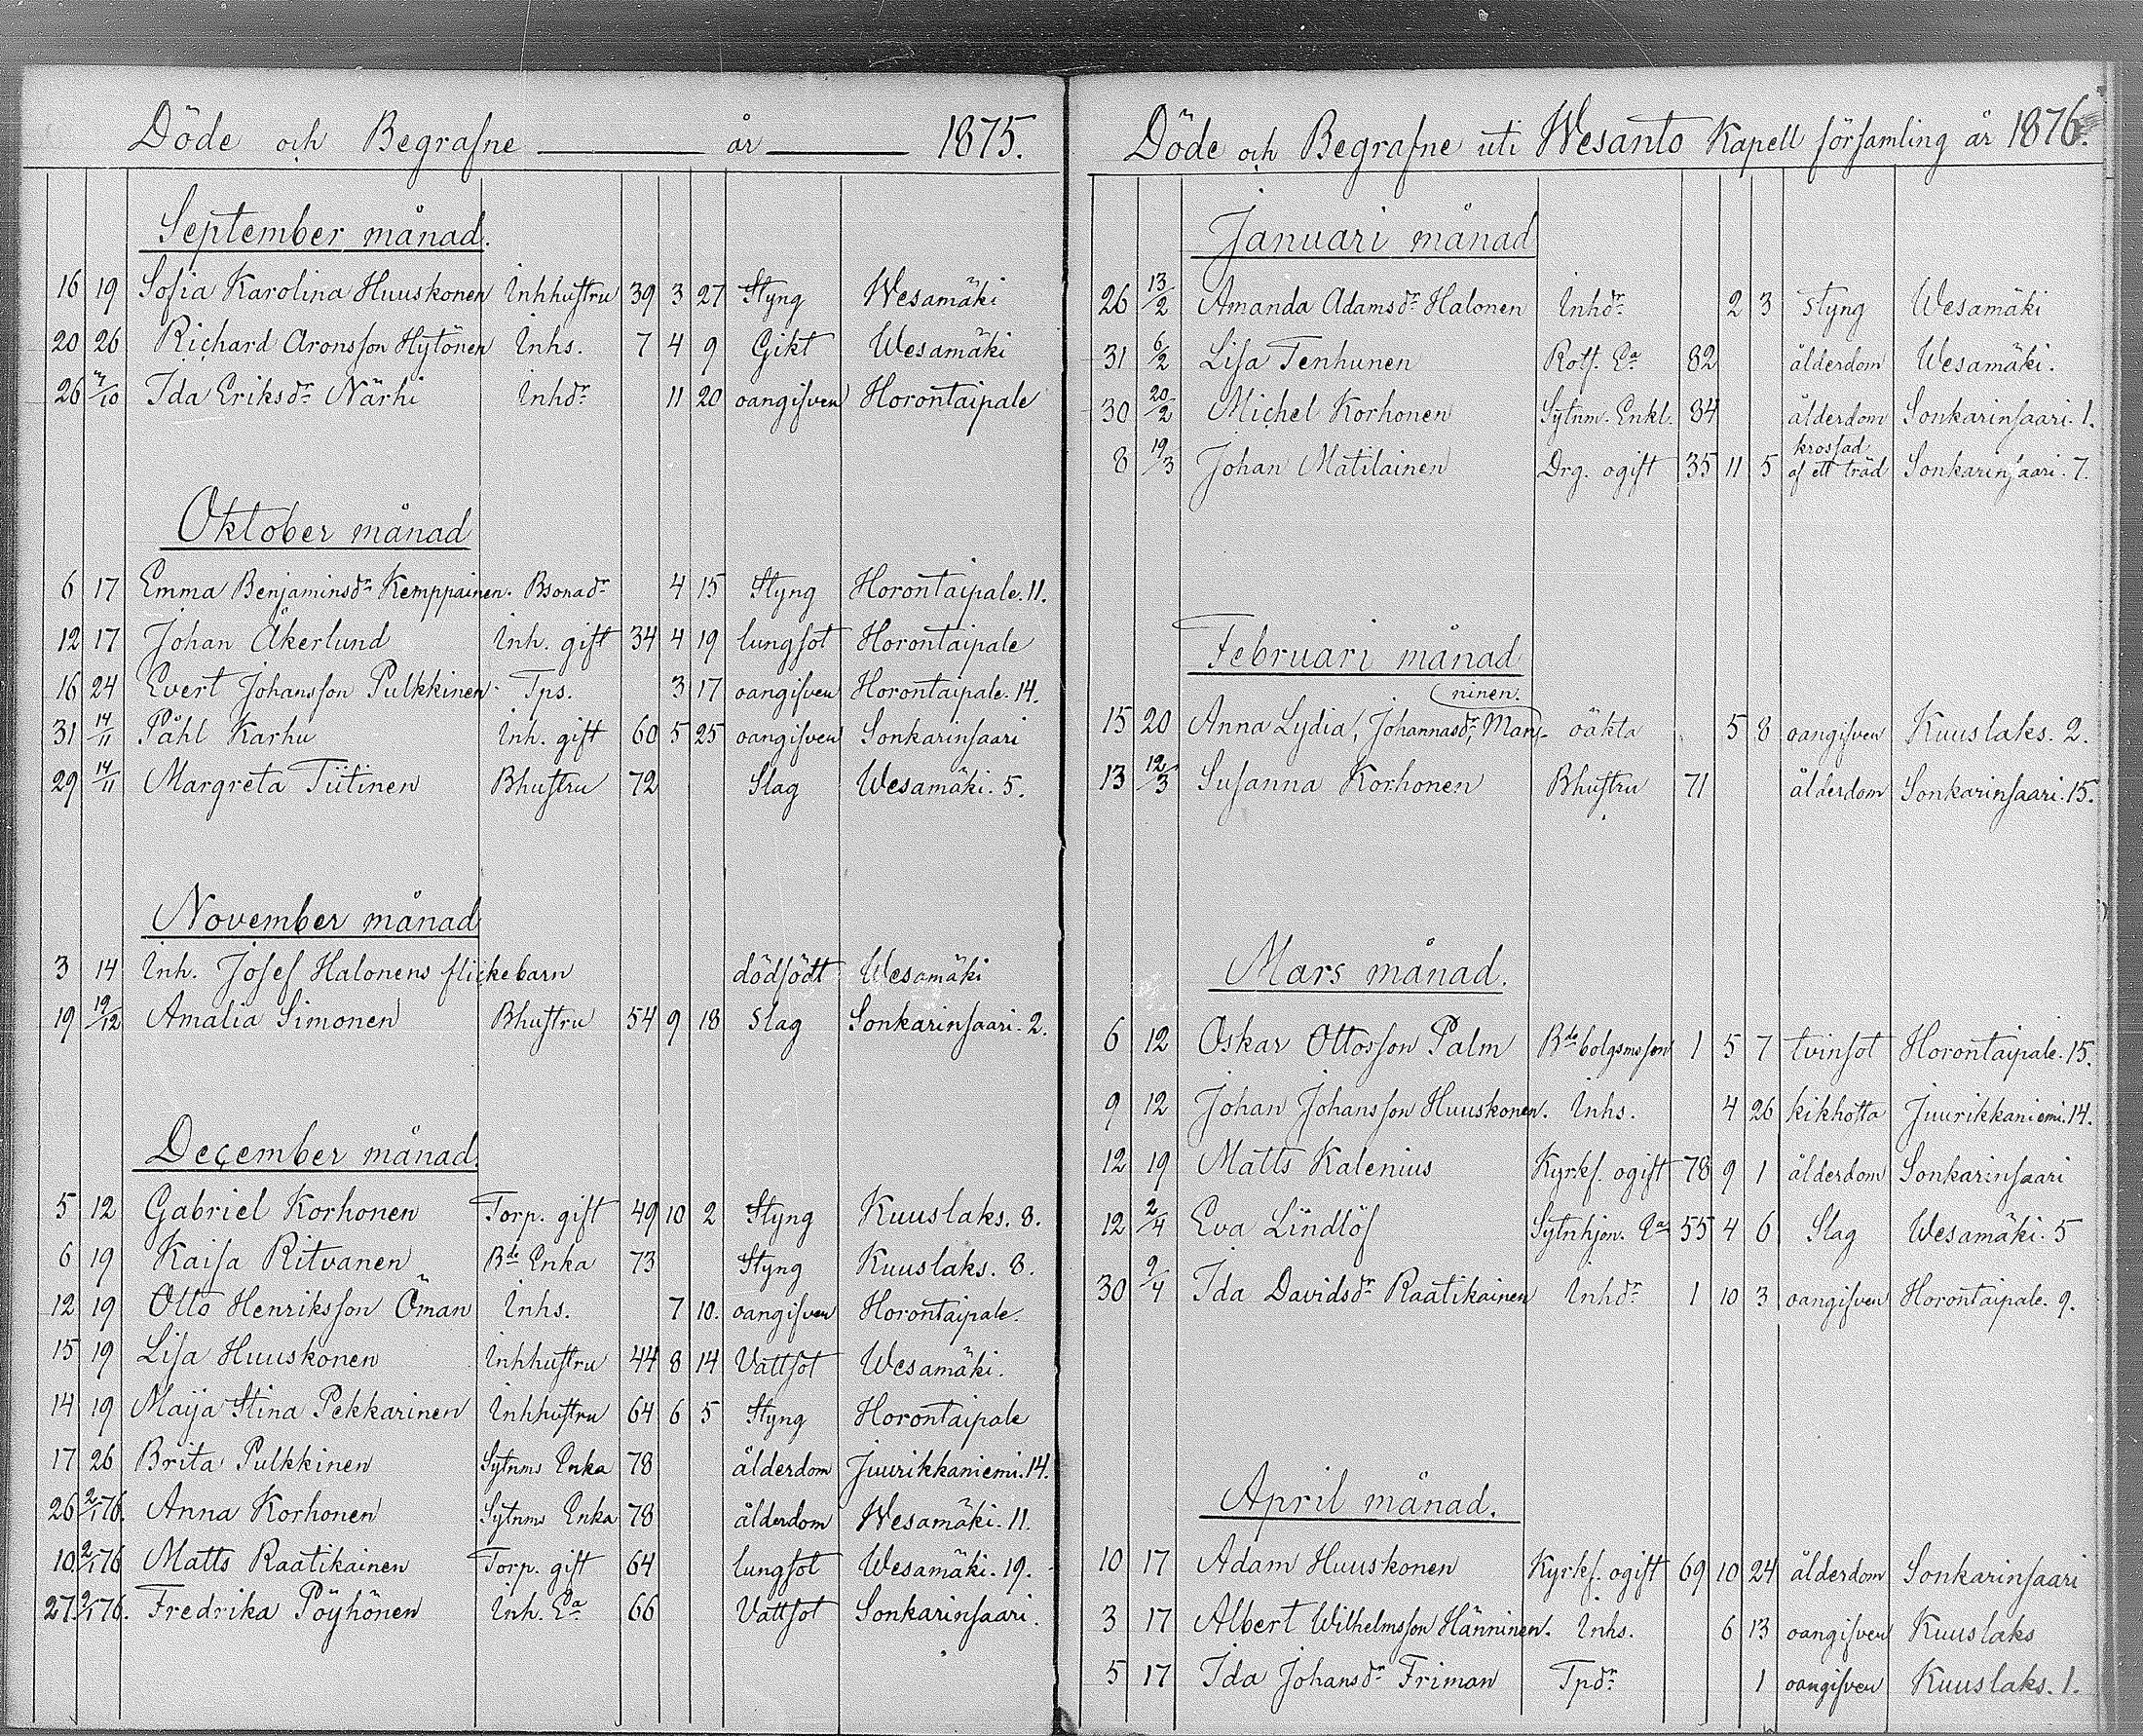 Döde och Begrafne år 1875.
September månad.
16 19 Sofia Karolina Huuskonen Inhhustru 39 3 27 Styng Wesamäki
20 26 Richard Aronsson Hytönen Inhs. 7 4 9 Gikt Wesamäki
26 /10 Ida Eriksdr Närhi Inhdr 11 20 oangifven Horontaipale
Oktober månad
6 17 Emma Benjaminsdr Kemppainen. Bsonadr 4 15 Styng Horontaipale. 11.
12 17 Johan Åkerlund Inh. gift 34 4 19 lungsot Horontaipale
16 24 Evert Johansson Pulkkinen Tps. 3 17 oangifven Horontaipale. 14.
31 14/11 Påhl Karhu Inh. gift 60 5 25 oangifven Sonkarinsaari
29 14/11 Margreta Tiitinen Bhustru 72 Slag Wesamäki. 5.
November månad
3 14 Inh. Josef Halonens flickebarn dödfödt Wesamäki
19 19/12 Amalia Simonen Bhustru 54 9 18 Slag Sonkarinsaari. 2.
December månad.
5 12 Gabriel Korhonen Torp. gift 49 10 2 Styng Kuuslaks. 8.
6 19 Kaisa Ritvanen Bde Enka 73 Styng Kuuslaks. 8.
12 19 Otto Henriksson Öman Inhs. 7 10. oangifven Horontaipale.
15 19 Lisa Huuskonen Inhhustru 44 8 14 Vattsot Wesamäki.
14 19 Maija Stina Pekkarinen Inhhustru 64 6 5 Styng Horontaipale
17 26 Brita Pulkkinen Sytnms Enka 78 ålderdom Juurikkaniemi. 14.
26 2/1 76. Anna Korhonen Sytnms Enka 78 ålderdom Wesamäki. 11.
10. 2/1 76 Matts Raatikainen Torp. gift 64 lungsot Wesamäki. 19.
27. 2/1 76. Fredrika Pöyhönen Inh. Ea 66 Vattsot Sonkarinsaari.
Döde och Begrafne uti Wesanto Kapell församling år 1876.
Januari månad
26 13/2 Amanda Adamsdr Halonen Inhdr 2 3 styng Wesamäki
31 6/2 Lisa Tenhunen Rotf. Ea 82 ålderdom Wesamäki.
30 20/2 Michel Korhonen Sytnm. Enkl. 84 ålderdom Sonkarinsaari. 1.
krossad
8 19/3 Johan Matilainen Drg. ogift 35 11 5 af ett träd Sonkarinsaari. 7.
Februari månad
ninen.
15 20 Anna Lydia, Johannasdr, Man- oäkta 5 8 oangifven Kuuslaks. 2.
13 12/3 Susanna Korhonen Bhustru 71 ålderdom Sonkarinsaari. 15.
Mars månad.
6 12 Oskar Ottosson Palm Bdebolgsmsson 1 5 7 tvinsot Horontaipale. 15.
9 12 Johan Johansson Huuskonen. Inhs. 4 26 kikhosta Juurikkaniemi. 14.
12 19 Matts Kalenius Kyrkf. ogift 78 9 1 ålderdom Sonkarinsaari
12 2/4 Eva Lindlöf Sytnhjon. Ea 55 4 6 Slag Wesamäki. 5
30 9/4 Ida Davidsdr Raatikainen Inhdr 1 10 3 oangifven Horontaipale. 9.
April månad.
10 17 Adam Huuskonen Kyrkf. ogift 69 10 24 ålderdom Sonkarinsaari
3 17 Albert Wilhelmsson Hänninen. Inhs. 6 13 oangifven Kuuslaks
5 17 Ida Johansdr Friman Tpdr 1 oangifven Kuuslaks. 1.